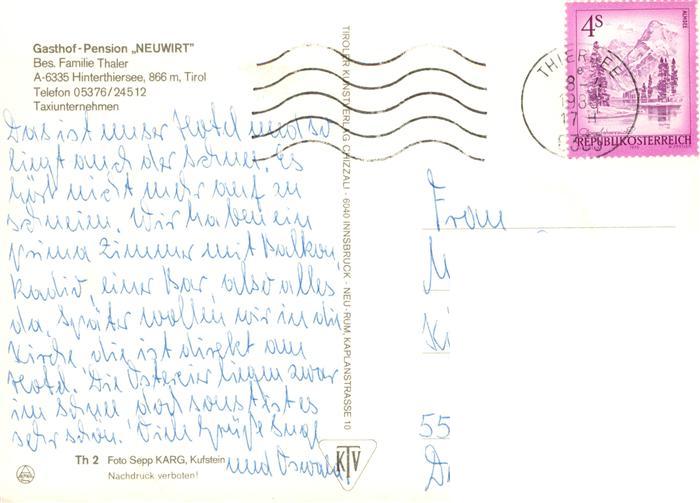 Gasthof-Pension „NEUWIRT"
Bes. Familie Thaler
A-6335 Hinterthiersee, 866 m, Tirol
Telefon 05376/24512
Taxiunternehmen
Das ist unser Hotel und so
liegt auch der Schnee. Es
hört nicht mehr auf zu
schneien. Wir haben ein
prima Zimmer mit Balkon,
Radio, einer Bar, also alles
da. Später wollen wir in die
Kirche, die ist direkt am
Hotel. Die Ostereier liegen zwar
im Schnee doch sonst ist es
sehr schön. Viele Grüße
und Oswald
Th 2 Foto Sepp KARG, Kufstein
Nachdruck verboten!
TIROLER KUNSTVERLAG CHIZZALI · 6040 INNSBRUCK - NEU-RUM, KAPLANSTRASSE 10
KTV
4S
REPUBLIK ÖSTERREICH
THIERSEE
Frau
55